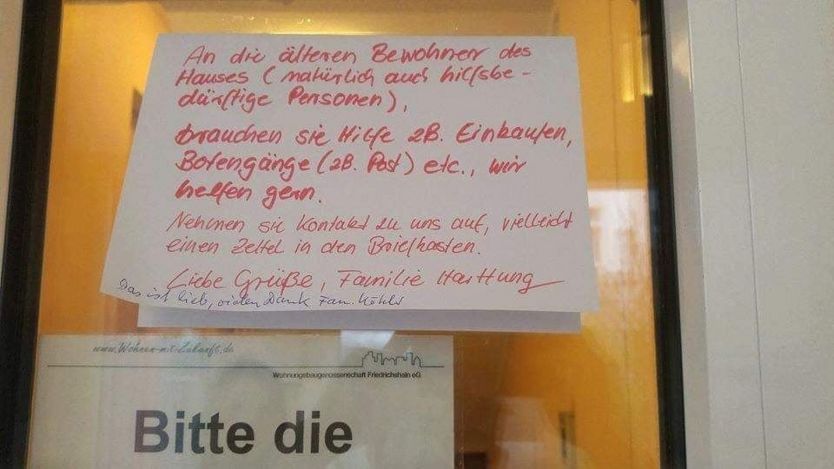 An die älteren Bewohner des
Hauses (natürlich auch hilfsbe-
dürftige Personen),
brauchen sie Hilfe zB. Einkaufen,
Botengänge (zB. Post) etc., wir
helfen gern.
Nehmen sie Kontakt zu uns auf, vielleicht
einen Zettel in den Briefkasten.
Liebe Grüße, Familie Harttung
Das ist lieb, vielen Dank Fam. Köhler
www.Wohnen-mit-Zukunft.de
Wohnungsbaugenossenschaft Friedrichshain eG
Bitte die